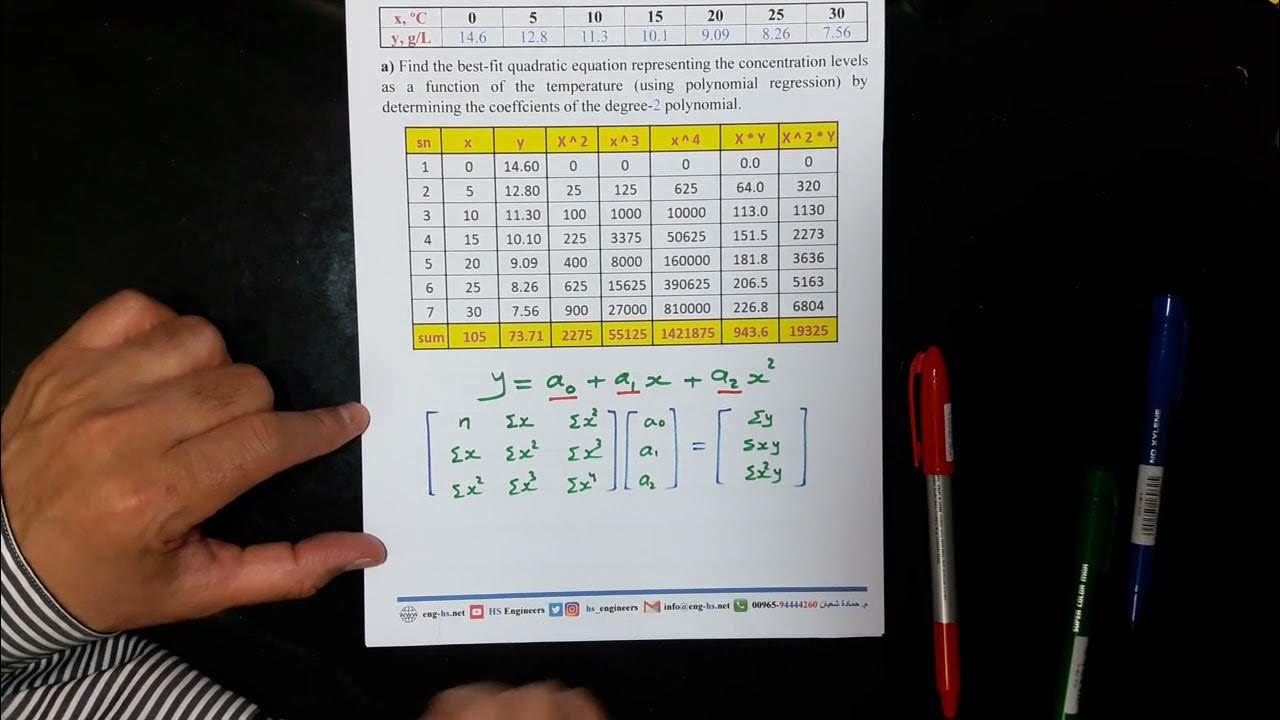 x, ºC 0 5 10 15 20 25 30
y, g/L 14.6 12.8 11.3 10.1 9.09 8.26 7.56
a) Find the best-fit quadratic equation representing the concentration levels
as a function of the temperature (using polynomial regression) by
determining the coeffcients of the degree-2 polynomial.
sn x y X^2 x^3 x^4 X*Y X^2*Y
1 0 14.60 0 0 0 0.0 0
2 5 12.80 25 125 625 64.0 320
3 10 11.30 100 1000 10000 113.0 1130
4 15 10.10 225 3375 50625 151.5 2273
5 20 9.09 400 8000 160000 181.8 3636
6 25 8.26 625 15625 390625 206.5 5163
7 30 7.56 900 27000 810000 226.8 6804
sum 105 73.71 2275 55125 1421875 943.6 19325
y = a₀ + a₁ x + a₂ x²
[ n Σx Σx² ] [ a₀ ] = [ Σy ]
[ Σx Σx² Σx³ ] [ a₁ ] [ Σxy ]
[ Σx² Σx³ Σx⁴ ] [ a₂ ] [ Σx²y ]
www eng-hs.net HS Engineers hs_engineers info@eng-hs.net 00965-94444260 م. حمادة شعبان
NO XYLENE
SUPER COLOR MARK